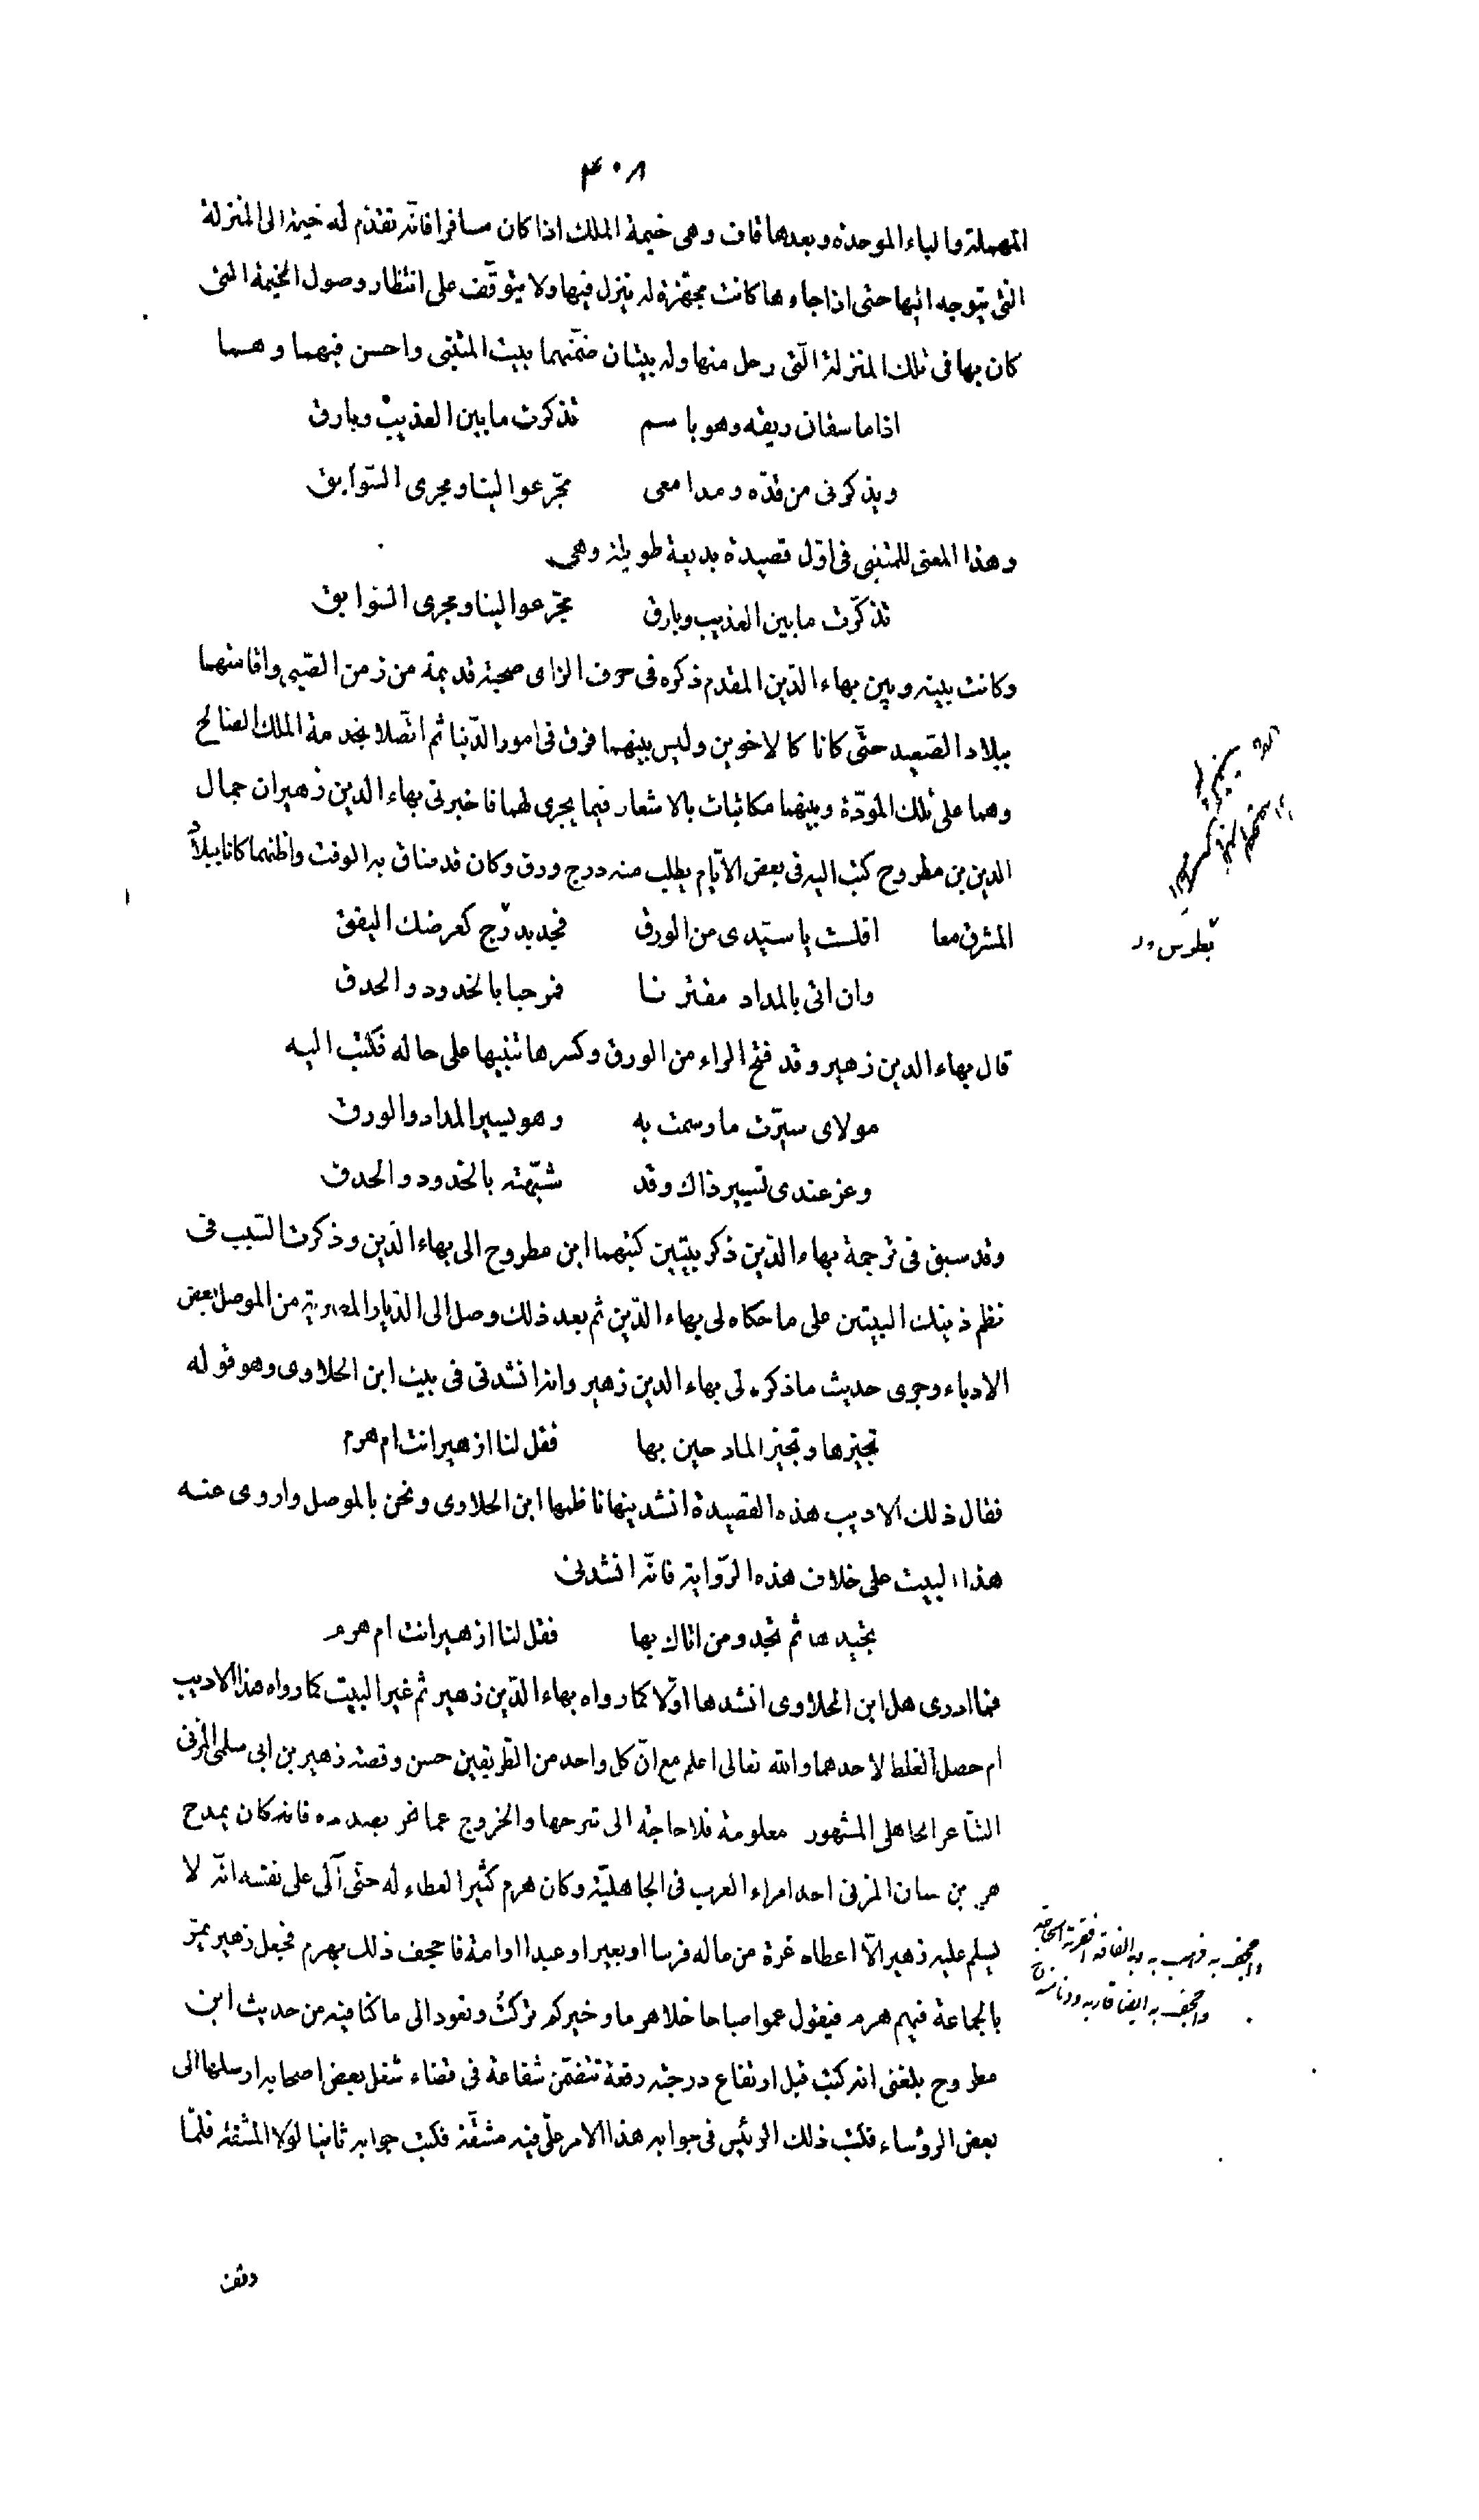 ۴۰۸
المهملة والباء الموحدة وبعدها قاف وهى خيمة الملك اذا كان مسافرا فانّه تقدّم له خيمة الى المنزلة
التى يتوجه اليها حتى اذا جاءها كانت مجهّزة له ينزل فيها ولا يتوقّف على انتظار وصول الخيمة التى
كان بها فى تلك المنزلة الّتى رحل منها وله بيتان ضمّنهما بيت المتنبى واحسن فيهما وهما
اذا ما سقانى ريقه وهو باسم تذكرت ما بين العذيب وبارق
ويذكرنى من قدّه ومدامعى مجّر عوالينا ومجرى السّوابق
وهذا المعنى للمتنبى فى اوّل قصيدة بديعة طويلة وهى
تذكّرت ما بين العذيب وبارق مجّر عوالينا ومجرى السّوابق
وكانت بينه وبين بهاء الدّين المقدم ذكره فى حرف الزاى صحبة قديمة من زمن الصّبى واقامتهما
ببلاد الصّعيد حتّى كانا كالاخوين وليس بينهما فرق فى امور الدّنيا ثم اتّصلا بخدمة الملك الصالح
وهما على تلك المودّة وبينهما مكاتبات بالاشعار فيما يجرى لهما فاخبرنى بهاء الدين زهير ان جمال
الدين بن مطروح كتب اليه فى بعض الايّام يطلب منه درج ورق وكان قد ضاق به الوقت واظنهما كانا ببلاد
المشرق معا افلست يا سيّدى من الورق فجد بدرج كعرضك اليقق
وان اتى بالمداد مقترنا فمرحبا بالخدود والحدق
قال بهاء الدين زهير وقد فتح الراء من الورق وكسرها تنبيها على حاله فكتب اليه
مولاى سيّرت ما رسمت به وهو يسير المداد والورق
وعز عندى تسيير ذاك وقد شبّهته بالخدود والحدق
وقد سبق فى ترجمة بهاء الدّين ذكر بيتين كتبهما ابن مطروح الى بهاء الدّين وذكرت السّبب فى
نظم ذينك البيتين على ما حكاه لى بهاء الدّين ثم بعد ذلك وصل الى الدّيار المصرية من الموصل بعض
الادباء وجرى حديث ما ذكره لى بهاء الدين زهير وانه انشدنى فى بيت ابن الحلاوى وهو قوله
تجيزها وتجيز المادحين بها فقل لنا ازهير انت ام هرم
فقال ذلك الاديب هذه القصيدة انشدنيها ناظمها ابن الحلاوى ونحن بالموصل واروى عنه
هذا البيت على خلاف هذه الرّواية فانّه انشدنى
تجيدها ثم تجدو من اتاك بها فقل لنا ازهير انت ام هرم
فما ادرى هل ابن الحلاوى انشدها اوّلا كما رواه بهاء الدّين زهير ثم غير البيت كما رواه هذا الاديب
ام حصل الغلط لاحدهما والله تعالى اعلم مع انّ كل واحد من الطّريقين حسن وقصة زهير بن ابى سلمى المزنى
الشّاعر الجاهلى المشهور معلومة فلا حاجة الى شرحها والخروج عما نحن بصدده فانه كان يمدح
هرم بن سنان المزنى احد امراء العرب فى الجاهليّة وكان هرم كثير العطاء له حتّى آلى على نفسه انّه لا
يسلم عليه زهير الّا اعطاه غرة من ماله فرسا او بعيرا او عبدا او امة فاجحف ذلك بهرم فجعل زهير يمرّ
بالجماعة فيهم هرم فيقول عموا صباحا خلا هرما وخيركم تركت ونعود الى ما كنا فيه من حديث ابن
مطروح بلغنى انه كتب قبل ارتفاع درجته رقعة تتضمّن شفاعة فى قضاء شغل بعض اصحابه ارسلها الى
بعض الرؤساء فكتب ذلك الرئيس فى جوابه هذا الامر علّى فيه مشقّة فكتب جوابه ثانيا لولا المشقة فلمّا